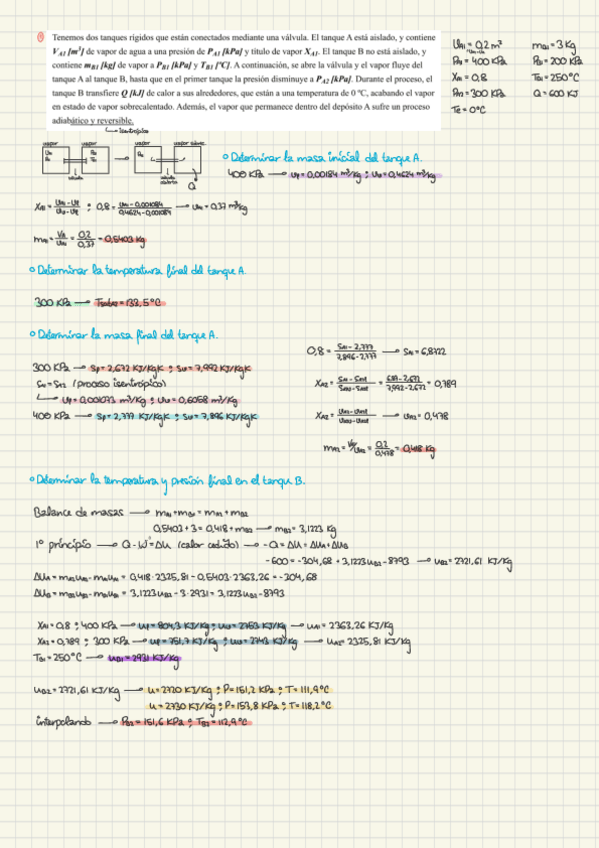 ① Tenemos dos tanques rígidos que están conectados mediante una válvula. El tanque A está aislado, y contiene
V_A1 [m³] de vapor de agua a una presión de P_A1 [kPa] y título de vapor X_A1. El tanque B no está aislado, y
contiene m_B1 [kg] de vapor a P_B1 [kPa] y T_B1 [ºC]. A continuación, se abre la válvula y el vapor fluye del
tanque A al tanque B, hasta que en el primer tanque la presión disminuye a P_A2 [kPa]. Durante el proceso, el
tanque B transfiere Q [kJ] de calor a sus alrededores, que están a una temperatura de 0 ºC, acabando el vapor
en estado de vapor sobrecalentado. Además, el vapor que permanece dentro del depósito A sufre un proceso
adiabático y reversible.
↳ isentrópico
V_A1 = 0,2 m³
P_A1 = 400 KPa
X_A1 = 0,8
P_A2 = 300 KPa
T_E = 0ºC
m_B1 = 3 Kg
P_B1 = 200 KPa
T_B1 = 250ºC
Q = 600 KJ
vapor vapor vapor
válvula
válvula abierta
Q
o Determinar la masa inicial del tanque A.
400 KPa → v_f = 0,00184 m³/Kg ; v_v = 0,4624 m³/Kg
0,8 = → v_A1 = 0,37 m³/Kg
m_A1 = V_A/v_A1 = 0,2/0,37 = 0,5403 Kg
o Determinar la temperatura final del tanque A.
300 KPa → = 133,5ºC
o Determinar la masa final del tanque A.
0,8 = (s_A1 - 2,777)/(7,896 - 2,777) → s_A1 = 6,8722
300 KPa → s_f = 2,672 KJ/KgK ; s_v = 7,992 KJ/KgK
s_A1 = s_A2 (proceso isentrópico)
X_A2 = = (6,87 - 2,672)/(7,992 - 2,672) = 0,789
↳ v_f = 0,001073 m³/Kg ; v_v = 0,6058 m³/Kg
400 KPa → s_f = 2,777 KJ/KgK ; s_v = 7,896 KJ/KgK
X_A2 = → v_A2 = 0,478
m_A2 = V_A/v_A2 = 0,2/0,478 = 0,418 Kg
o Determinar la temperatura y presión final en el tanque B.
Balance de masas → m_A1 + m_B1 = m_A2 + m_B2
0,5403 + 3 = 0,418 + m_B2 → m_B2 = 3,1223 Kg
1º principio → Q - W = ΔU (calor cedido) → -Q = ΔU = ΔU_A + ΔU_B
-600 = -304,68 + 3,1223 u_B2 - 8793 → u_B2 = 2721,61 KJ/Kg
ΔU_A = m_A2 u_A2 - m_A1 u_A1 = 0,418 · 2325,81 - 0,5403 · 2363,26 = -304,68
ΔU_B = m_B2 u_B2 - m_B1 u_B1 = 3,1223 u_B2 - 3 · 2931 = 3,1223 u_B2 - 8793
X_A1 = 0,8 ; 400 KPa → u_f = 804,3 KJ/Kg ; u_v = 2753 KJ/Kg → u_A1 = 2363,26 KJ/Kg
X_A2 = 0,789 ; 300 KPa → u_f = 751,7 KJ/Kg ; u_v = 2743 KJ/Kg → u_A2 = 2325,81 KJ/Kg
T_B1 = 250ºC → u_B1 = 2931 KJ/Kg
u_B2 = 2721,61 KJ/Kg → u = 2720 KJ/Kg ; P = 151,2 KPa ; T = 111,9ºC
u = 2730 KJ/Kg ; P = 153,8 KPa ; T = 118,2ºC
interpolando → P_B2 = 151,6 KPa ; T_B2 = 112,9ºC